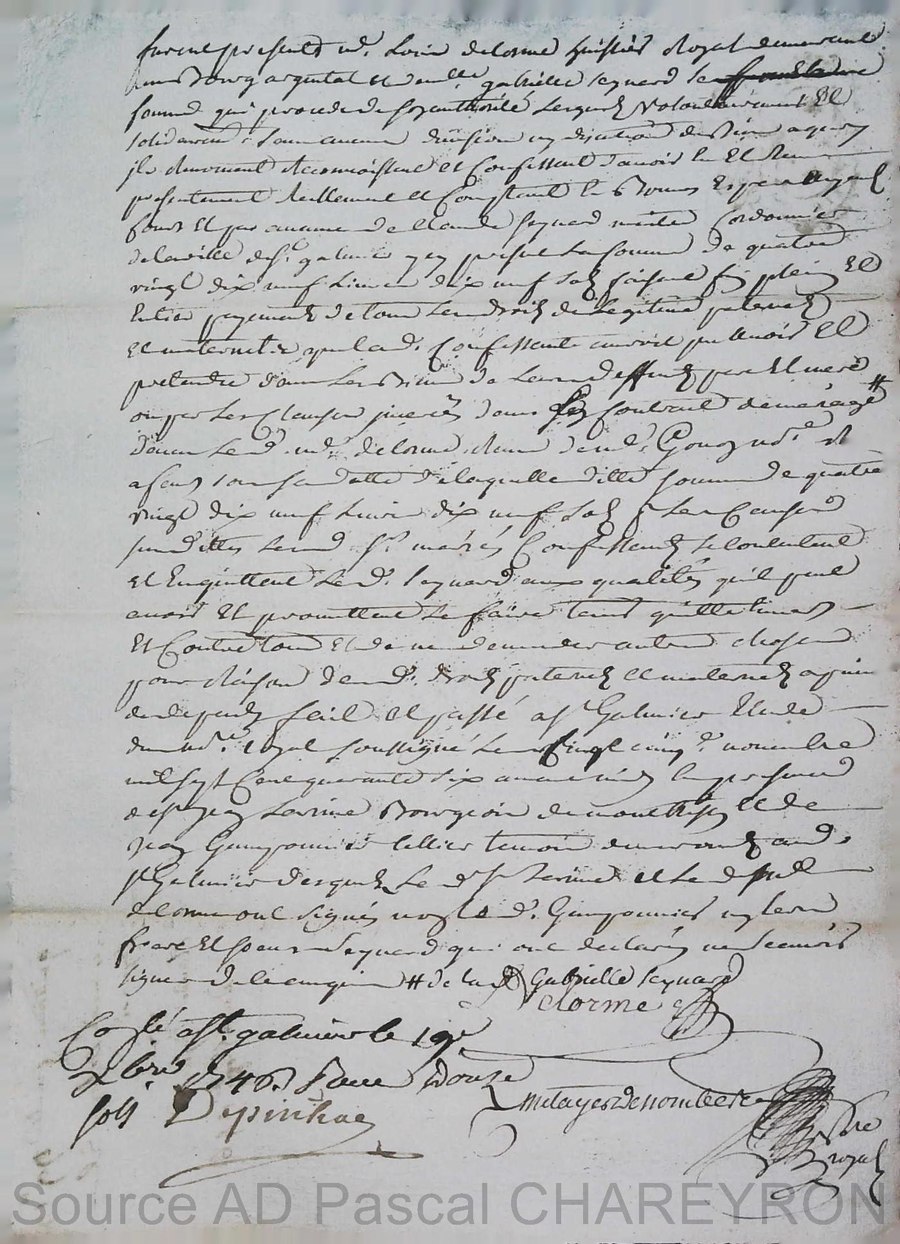 furent presents md. Louis delorme huissier Royal demeurant
au Bourg argental et demlle gabrielle seynard sa femme
femme qui procede de son authorité lesquels volontairement Et
solidairement sans aucune division ny discution de Biens a quoy
ils renoncent Reconnoissent et Confessent d'avoir eu Et Receu
presentement Reellement et Comptant en Bonnes Especes ayant
cours Et par de Claude seynard maitre Cordonnier
de la ville de st. galmier y present La somme de quatre
vingt dix neuf Livres dix neuf sols faisant fin plein Et
Entier payement de tous les droits de Legitime paternels
Et maternels que lad. Confessante auroit pu avoir Et
pretendre dans les Biens de leurs deffunts pere Et mere
ou par les Clauses inserées dans Contrat de mariage #
d'avec led. md. delorme Receu de me. Gonon nore. st
a sous sa datte de laquelle ditte somme de quatre
vingt dix neuf Livres dix neuf sols pr. les Causes
susdittes lesd. st. mariés Confessants se Contentent
Et Enquittent led. seynard aux qualités qu'il peut
avoir Et promettent le faire tenir quitte Envers
Et Contre tous Et de ne rien demander autre chose
pour raison desd. droits paternels et maternels a peine
de depends fait et passé a st Galmier Etude
du nore. royal soussigné le vingt cinqe. novembre
mil sept Cent quarante six avant midy En presence
de sr Jean Bourgeois de et de
Jean Guyonnier Cellier temoins demeurants aud.
st Galmier desquels Le d. sr et led. sr
delorme ont signés non led. Guyonnier ny les
frere Et soeur seynard qui ont declarés ne scavoir
signer de ce enquis # de lad. Gabrielle seynard
Delorme
Conllé a st. galmier le 19e
Xbre 1746 Receu douze
sols Depinhac
metayer denombret
nore
royal
Source AD Pascal CHAREYRON